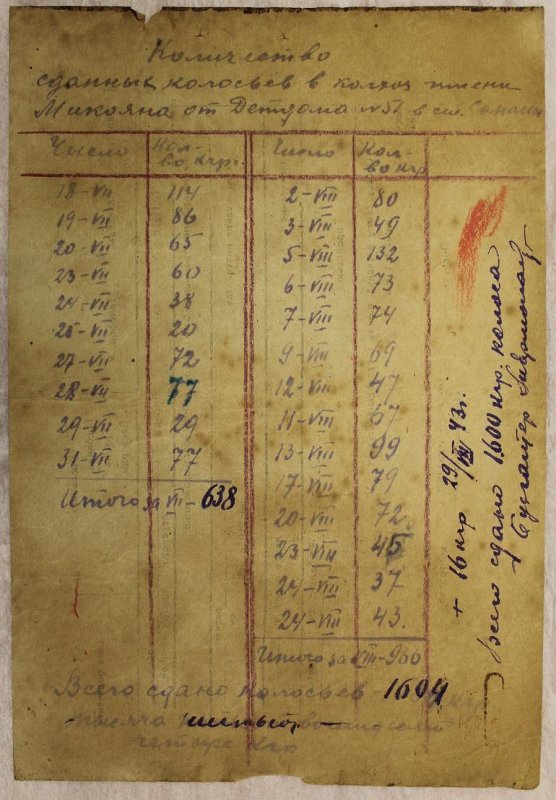 Количество
сданных колосьев в колхоз имени
Микояна от Детдома №51 в сел.
Число Кол-во кгр. Число Кол-во кгр
18-VII 114 2-VIII 80
19-VII 86 3-VIII 49
20-VII 65 5-VIII 132
23-VII 60 6-VIII 73
24-VII 38 7-VIII 74
25-VII 20 9-VIII 69
27-VII 72 12-VIII 47
28-VII 77 11-VIII 67
29-VII 29 13-VIII 99
31-VII 77 17-VIII 79
Итого за VII-638 20-VIII 72
23-VIII 45
24-VIII 37
24-VIII 43
Итого за VIII-966
Всего сдано колосьев-1604 кгр
тысяча шестьсот
четыре кгр
+ 16 кгр 29/VIII 43г.
Всего сдано 1600 кгр. колоса
Бухгалтер